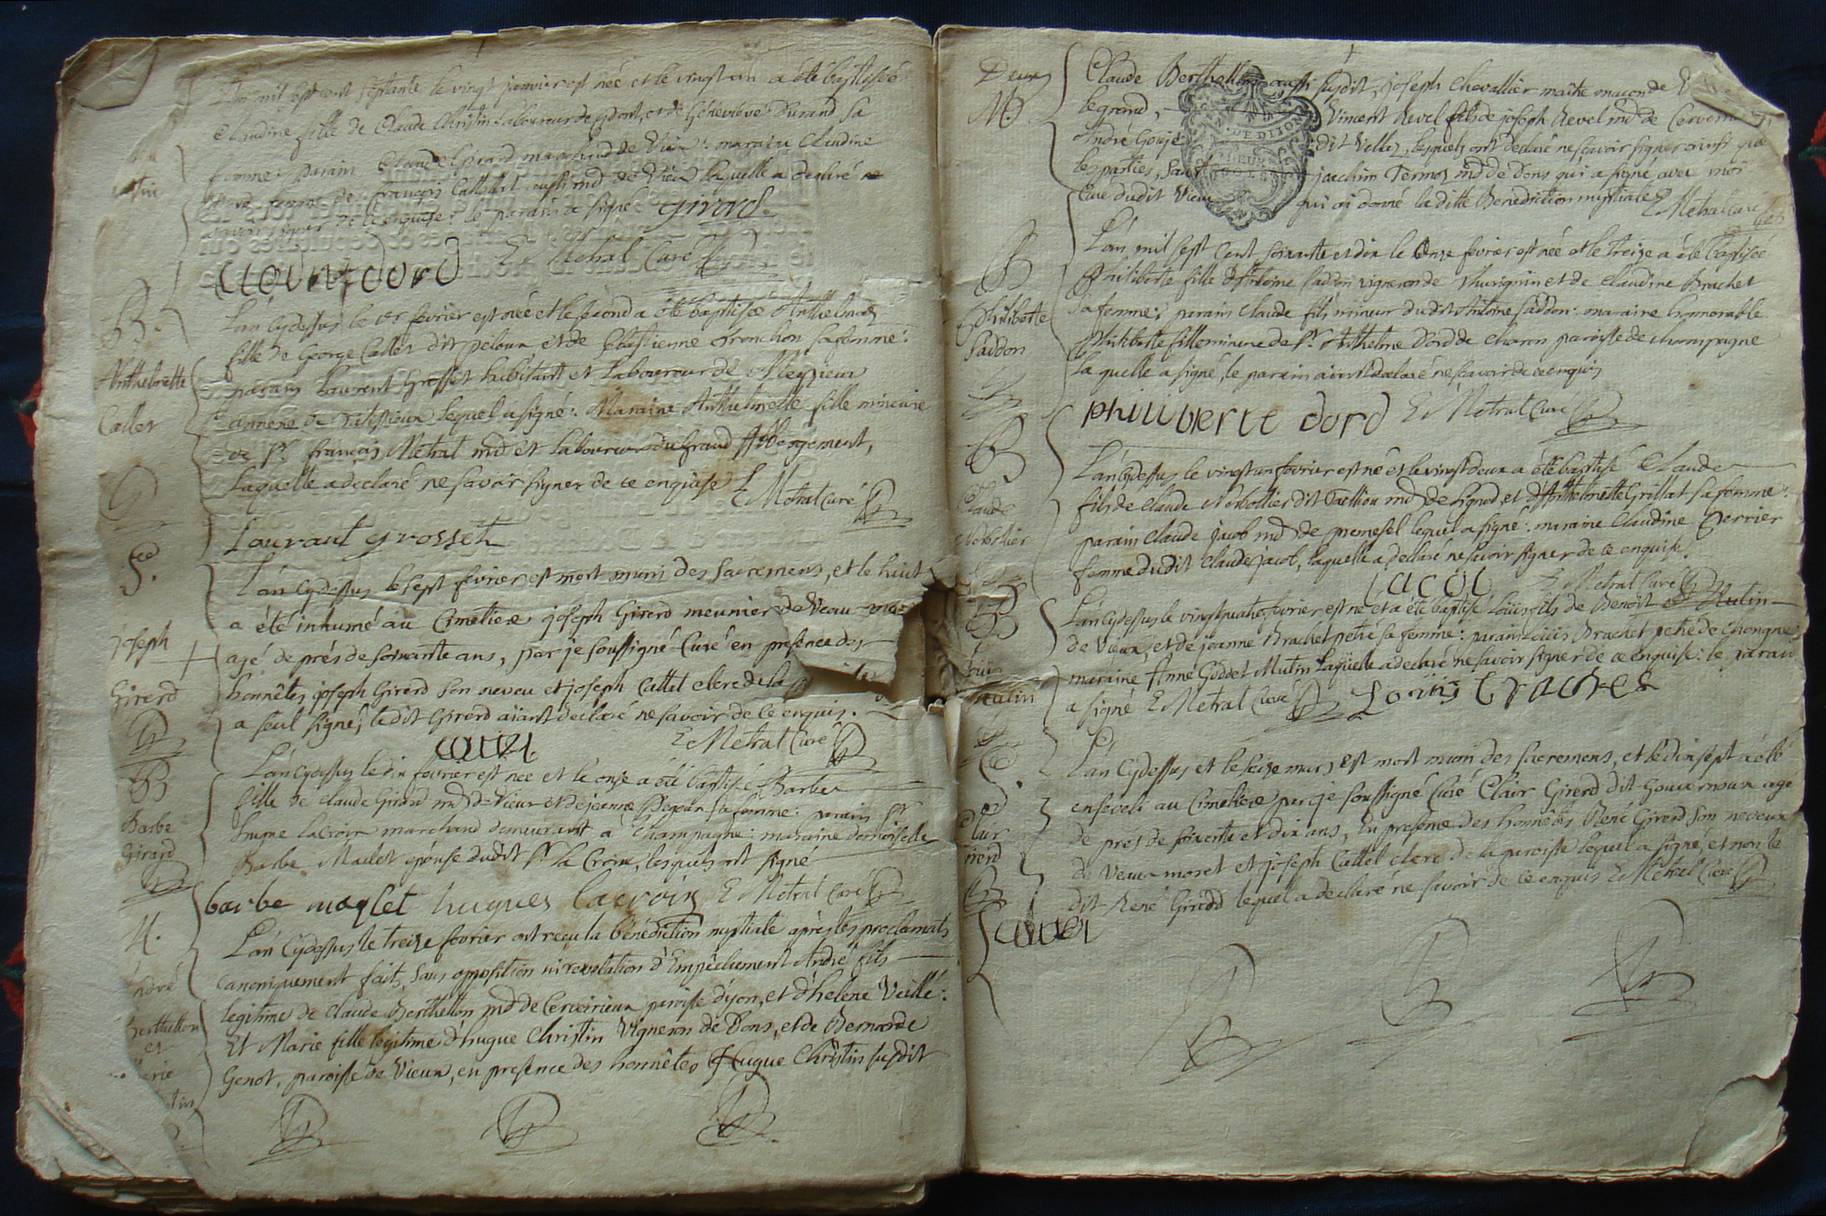 L'an mil sept cent septante le vingt janvier est née et le vingt un a été baptisée
Claudine fille de Claude Christin laboureur de et de Genevieve Durand sa
femme: parain Claude Girard marchand de Vieu: maraine Claudine
femme de françois Callet aussi md de Vieu laquelle a declaré ne
savoir signer de ce enquise: le parain a signé girard.
E Metral Curé
B.
Anthelmette
Callet
L'an cydessus le 1er fevrier est née et le second a été baptisée Anthelmette
fille de George Callet dit peloux et de sebastienne tronchon sa femme:
parain Laurent Grosset habitant et laboureur de
annexe de lequel a signé: Maraine Anthelmette fille mineure
de Sr. françois Metral md et laboureur du grand Abbergement,
laquelle a declaré ne savoir signer de ce enquise E Metral Curé
Lauraut grosset
S.
joseph
Girerd
L'an cydessus le sept fevrier est mort muni des sacremens, et le huit
a été inhumé au Cimetiere joseph Girerd meunier de Veau
agé de prés de soixante ans, par je soussigné Curé en presence des
honnêtes joseph Girerd son neveu et joseph Callet clerc de la
a seul signé, ledit Girerd aïant declaré ne savoir de ce enquis.
callet E Metral Curé
B
Barbe
Girard
L'an cydessus le dix fevrier est née et le onze a été baptisé Barbe
fille de Claude Girard md de Vieux et de jeanne sa femme: parain Sr.
hugue lacroix marchand demeurant a Champagne: maraine demoiselle
Barbe Maclet épouse dudit Sr. la Croix, lesquels ont signé
barbe maclet hugues lacroix E Metral Curé
M.
André
Berthellon
et
L'an cydessus le treize fevrier ont reçu la bénédiction nuptiale après les proclamats
canoniquement faits, sans opposition ni revelation d'Empêchement André fils
legitime de Claude Berthellon md de Cerveirieux paroisse d'yon, et d'helene Veillé:
Et Marie fille legitime d'hugue Christin Vigneron de Dons, et de Bernarde
Genot, paroisse de Vieux, en presence des honnêtes Hugue Christin susdit
Deux
M
Claude Berthellon aussi susdit, joseph Chevallier maître maçon de
le grand, Vincent Revel fils de joseph Revel md de
André Goujé dit Vellaz, lesquels ont declaré ne savoir signer ainsi que
les parties, sauf joachim Termoz md de Dons qui a signé avec moi
Curé dudit Vieux qui ai donné la ditte Benediction nuptiale E Metral Curé
DE DIJON
B
philiberte
Saddon
L'an mil sept cent soixante et dix le onze fevrier est née et le treize a été baptisée
Philiberte fille d'Antoine Saddon vigneron de Thurignin et de Claudine Brachet
sa femme; parain Claude fils mineur dudit Antoine Saddon: maraine honnorable
Philiberte fille mineure de Sr. Anthelme Dord de charon paroisse de champagne
la quelle a signé, le parain aiant declaré ne savoir de ce enquis
philiberte dord E Metral Curé
B
Claude
L'an cydessus le vingt un fevrier est né et le vingt deux a été baptisé Claude
fils de Claude dit md de Lignod, et d'Anthelmette Grillat sa femme:
parain Claude jacob md de lequel a signé: maraine Claudine Perrier
femme dudit Claude jacob, laquelle a declaré ne savoir signer de ce enquise.
jacob E Metral Curé
B
Mutin
L'an cydessus le vingt quatre fevrier est né et a été baptisé Louis fils de Benoît Mutin
de Vieux, et de jeanne Brachet petié sa femme: parain Louis Brachet petié de Chongnes
maraine Anne Goddet Mutin laquelle a declaré ne savoir signer de ce enquise: le parain
a signé E Metral Curé Louis Braches
L'an Cydessus et le seize mars est mort muni des sacremens, et le dix sept a été
enseveli au Cimetiere par je soussigné Curé Clair Girerd dit agé
de pres de soixante et dix ans, En presence des honnêtes René Girerd son neveux
de Veaux moret et joseph Callet clerc de la paroisse lequel a signé, et non le
dit René Girerd lequel a declaré ne savoir de ce enquis E Metral Curé
callet